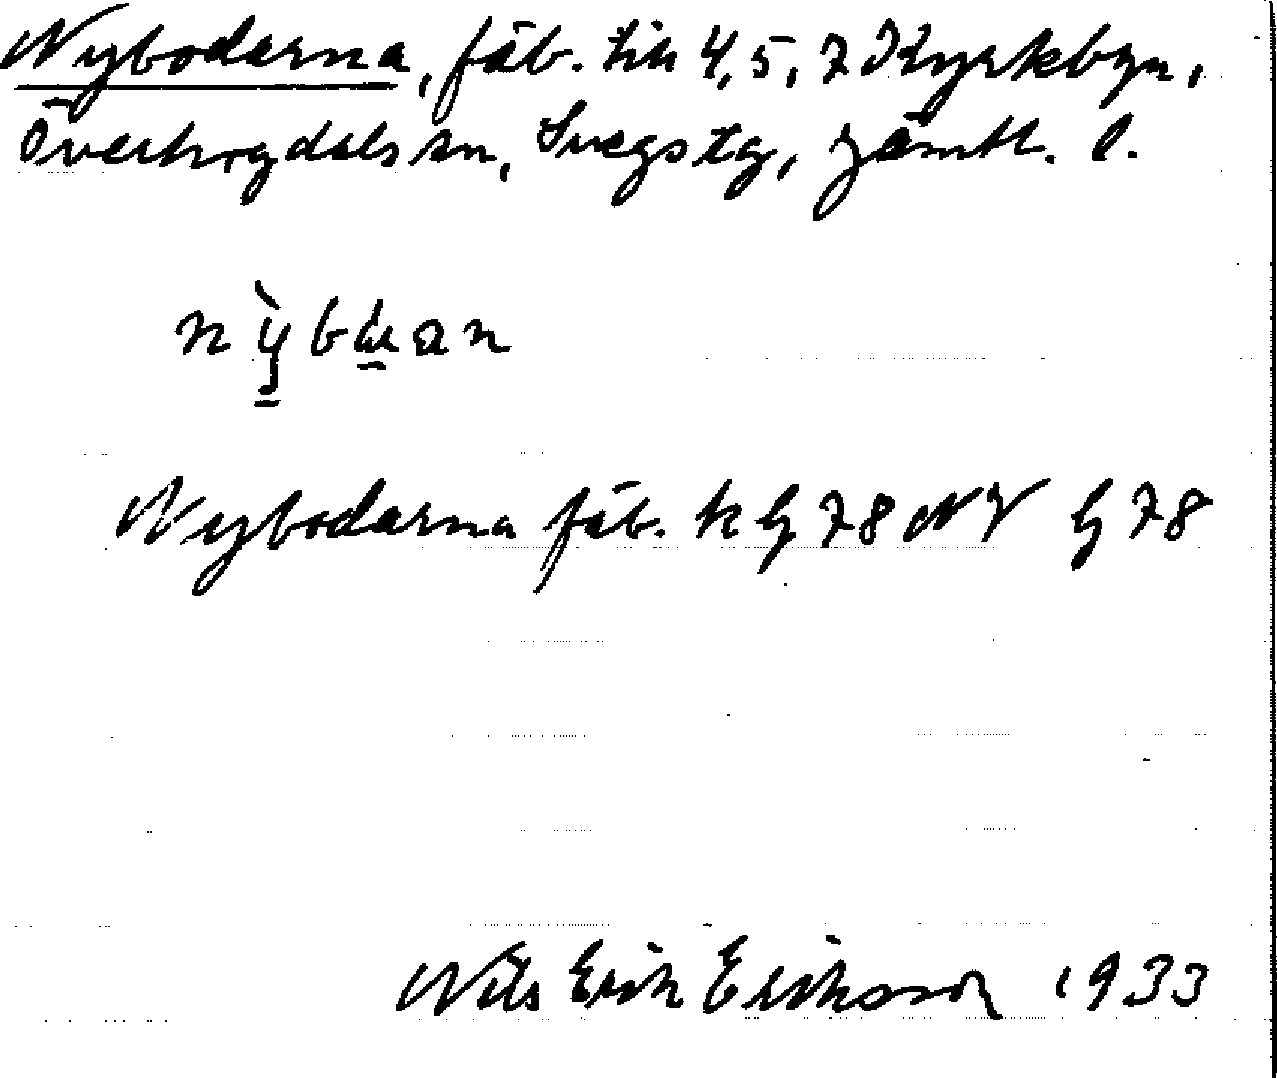 Nyboderna, fäb. till 4, 5, 7 Kyrkbyn,
Överhogdals sn, Svegs tg, Jämtl. l.
Nyboderna fäb. k G 78 NV G 78
Nils Erik Eriksson 1933